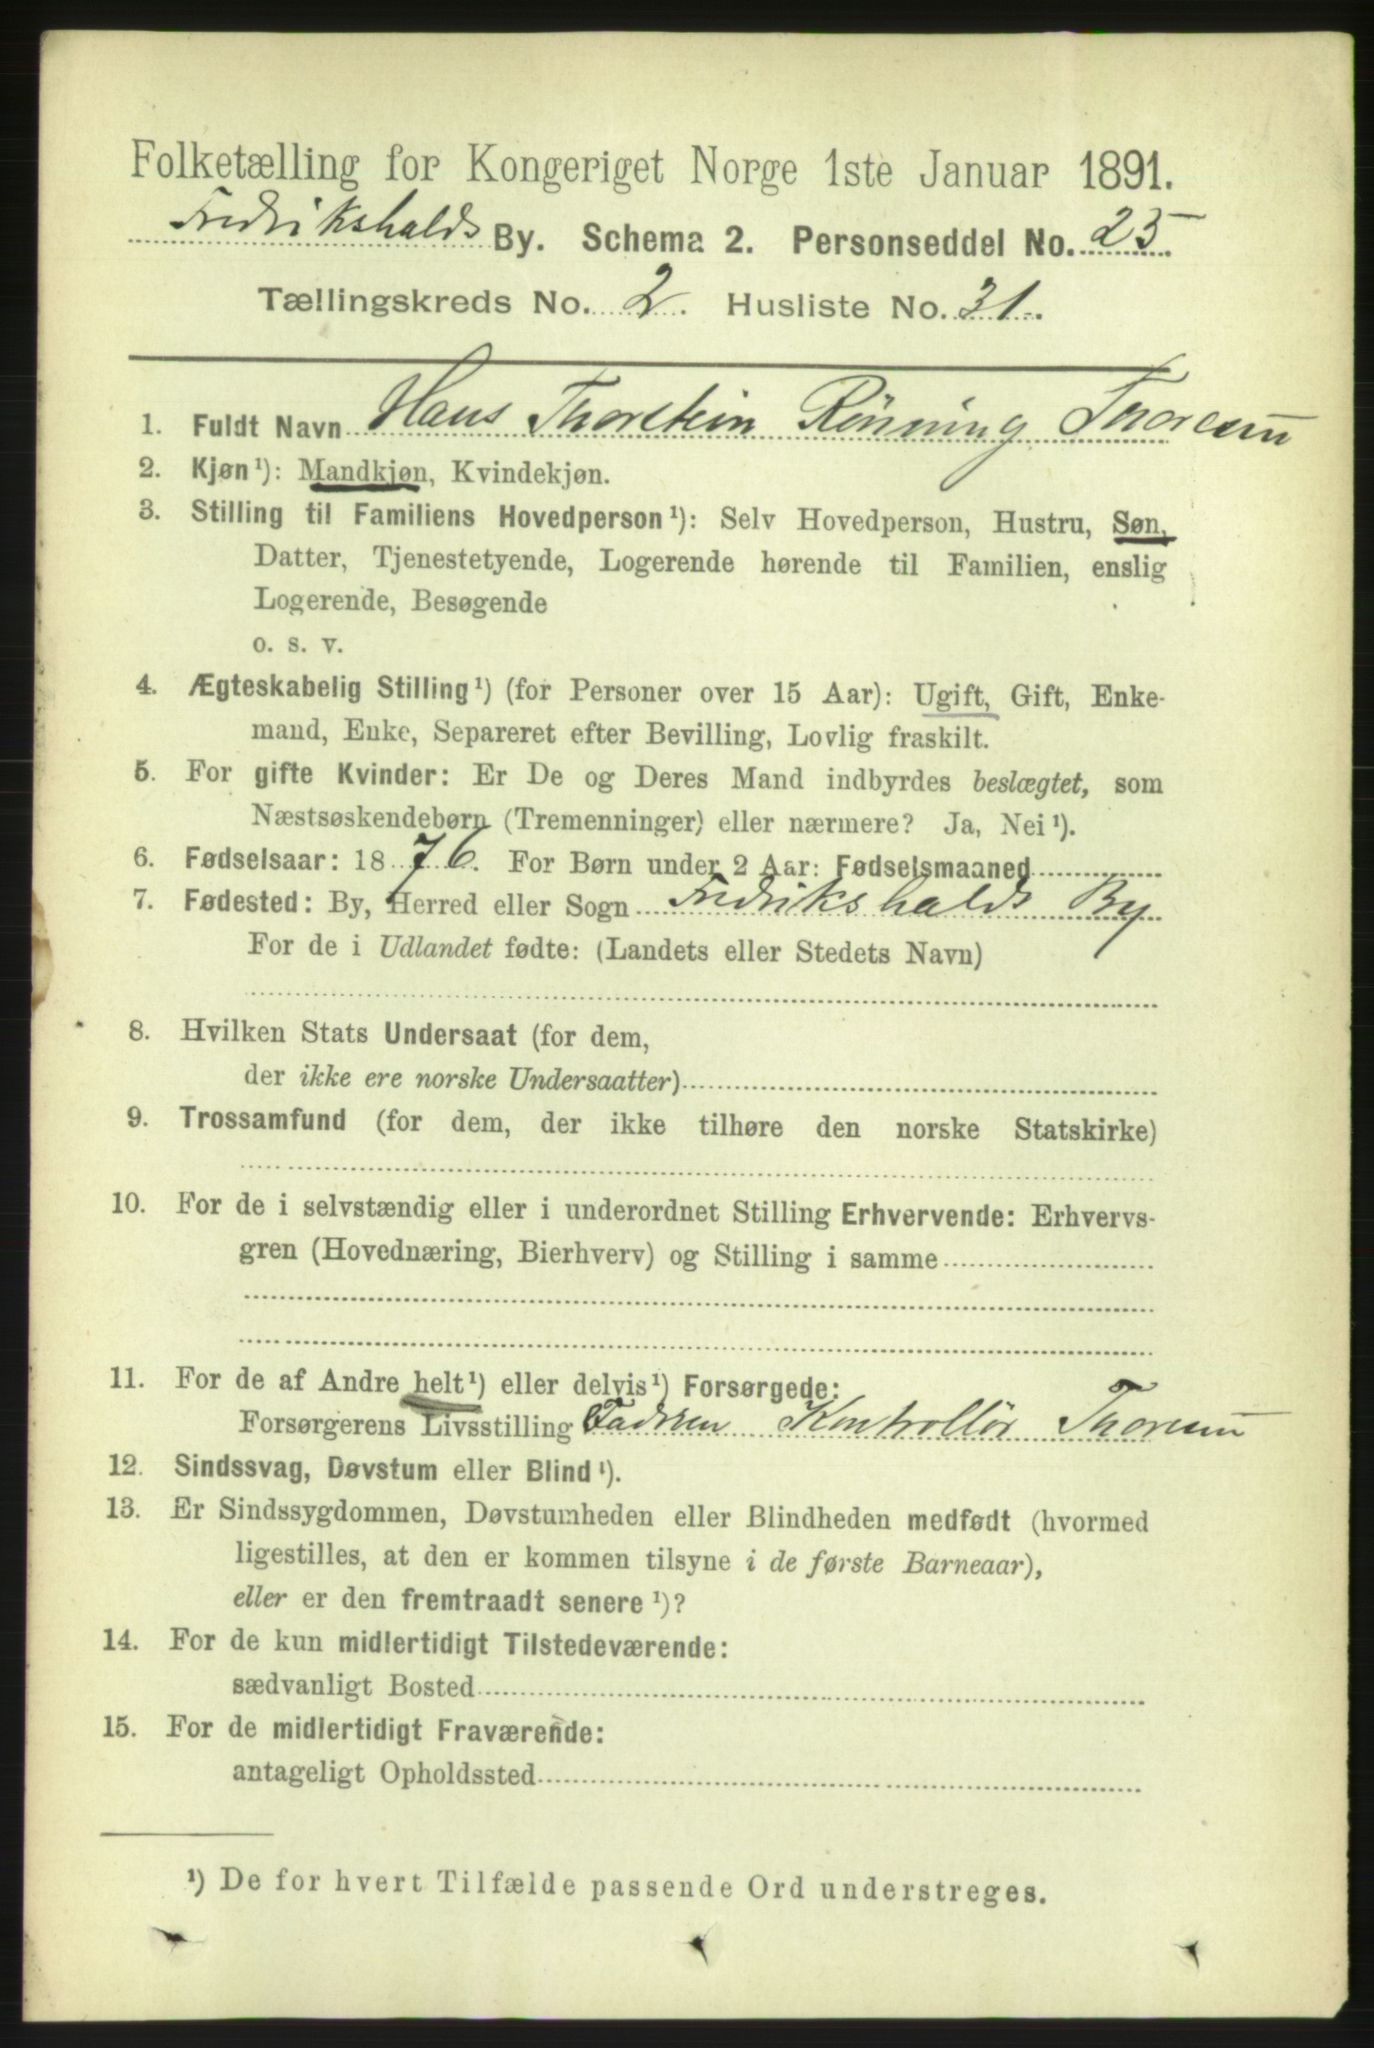 Folketælling for Kongeriget Norge 1ste Januar 1891.
Fredrikshalds By. Schema 2. Personseddel No. 25
Tællingskreds No. 2. Husliste No. 31.
1. Fuldt Navn Hans Thorstein Rønning Thoresen
2. Kjøn¹): Mandkjøn, Kvindekjøn.
3. Stilling til Familiens Hovedperson¹): Selv Hovedperson, Hustru, Søn,
Datter, Tjenestetyende, Logerende hørende til Familien, enslig
Logerende, Besøgende
o. s. v.
4. Ægteskabelig Stilling¹) (for Personer over 15 Aar): Ugift, Gift, Enke-
mand, Enke, Separeret efter Bevilling, Lovlig fraskilt.
5. For gifte Kvinder: Er De og Deres Mand indbyrdes beslægtet, som
Næstsøskendebørn (Tremenninger) eller nærmere? Ja, Nei¹).
6. Fødselsaar: 1876. For Børn under 2 Aar: Fødselsmaaned
7. Fødested: By, Herred eller Sogn Fredrikshalds By
For de i Udlandet fødte: (Landets eller Stedets Navn)
8. Hvilken Stats Undersaat (for dem,
der ikke ere norske Undersaatter)
9. Trossamfund (for dem, der ikke tilhøre den norske Statskirke)
10. For de i selvstændig eller i underordnet Stilling Erhvervende: Erhvervs-
gren (Hovednæring, Bierhverv) og Stilling i samme
11. For de af Andre helt¹) eller delvis¹) Forsørgede:
Forsørgerens Livsstilling Faderen Kontrollør Thoresen
12. Sindssvag, Døvstum eller Blind¹).
13. Er Sindssygdommen, Døvstumheden eller Blindheden medfødt (hvormed
ligestilles, at den er kommen tilsyne i de første Barneaar),
eller er den fremtraadt senere¹)?
14. For de kun midlertidigt Tilstedeværende:
sædvanligt Bosted
15. For de midlertidigt Fraværende:
antageligt Opholdssted
¹) De for hvert Tilfælde passende Ord understreges.